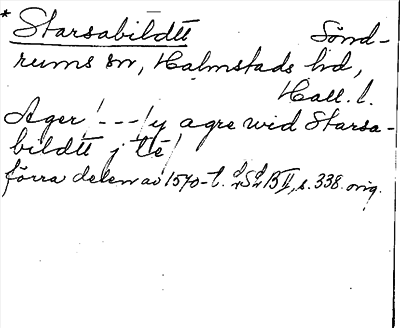 * Starsabildtt Sönd-
rums sn, Halmstads hd,
Hall. l.
Ager /---/ y agre wid Starsa-
bildtt j té/
förra delen av 1570-t. s. 338. orig.